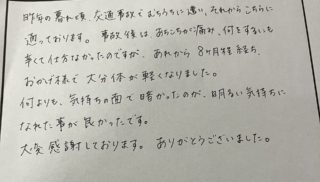 昨年の暮れ頃、交通事故でむちうちに遭い、それからこちらに
通っております。事故後は、あちこちが痛み、何をするにも
辛くて仕方なかったのですが、あれから8ヶ月程経ち、
おかげ様で大分体が軽くなりました。
何よりも、気持ちの面で暗かったのが、明るい気持ちに
なれた事が良かったです。
大変感謝しております。ありがとうございました。